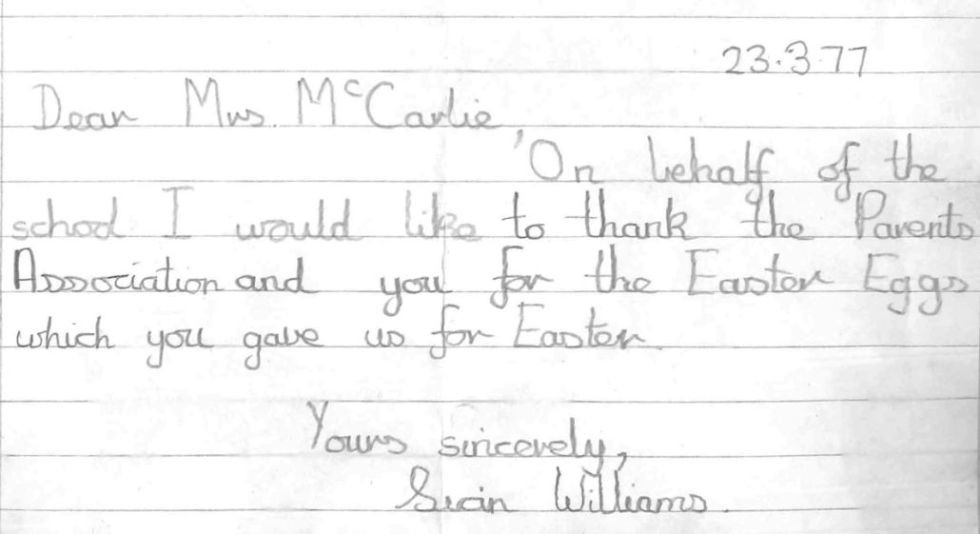 23.3.77
Dear Mrs. McCarlie,
'On behalf of the
school I would like to thank the Parents
Association and you for the Easter Eggs
which you gave us for Easter.
Yours sincerely,
Siân Williams.